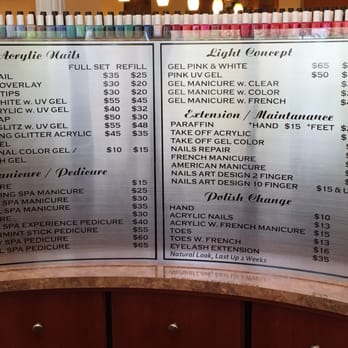 Acrylic Nails
FULL SET REFILL
AIL $35 $25
OVERLAY $30 $20
TIPS $30 $20
HITE w/ UV GEL $55 $45
ACRYLIC w/ UV GEL $40 $32
AP $50 $30
GLITZ w/ UV GEL $55 $48
NG GLITTER ACRYLIC $45 $35
EL
NAL COLOR GEL / $10 $15
H GEL
anicure / Pedicure
RE $15
ING SPA MANICURE $25
AL SPA MANICURE $30
URE $35
E $30
SPA EXPERIENCE PEDICURE $40
RMINT STICK PEDICURE $55
Y SPA PEDICURE $60
L SPA PEDICURE $65
Light Concept
GEL PINK & WHITE $65
PINK UV GEL $50
GEL MANICURE w/ CLEAR
GEL MANICURE w/ COLOR
GEL MANICURE w/ FRENCH
Extension / Maintanance
PARAFFIN *HAND $15 *FEET
TAKE OFF ACRYLIC
TAKE OFF GEL COLOR
NAILS REPAIR
FRENCH MANICURE
AMERICAN MANICURE
NAILS ART DESIGN 2 FINGER
NAILS ART DESIGN 10 FINGER $15 & U
Polish Change
HAND $10
ACRYLIC NAILS $13
ACRYLIC W. FRENCH MANICURE $15
TOES $13
TOES W. FRENCH $16
EYELASH EXTENSION $35
Natural Look, Last Up 2 Weeks